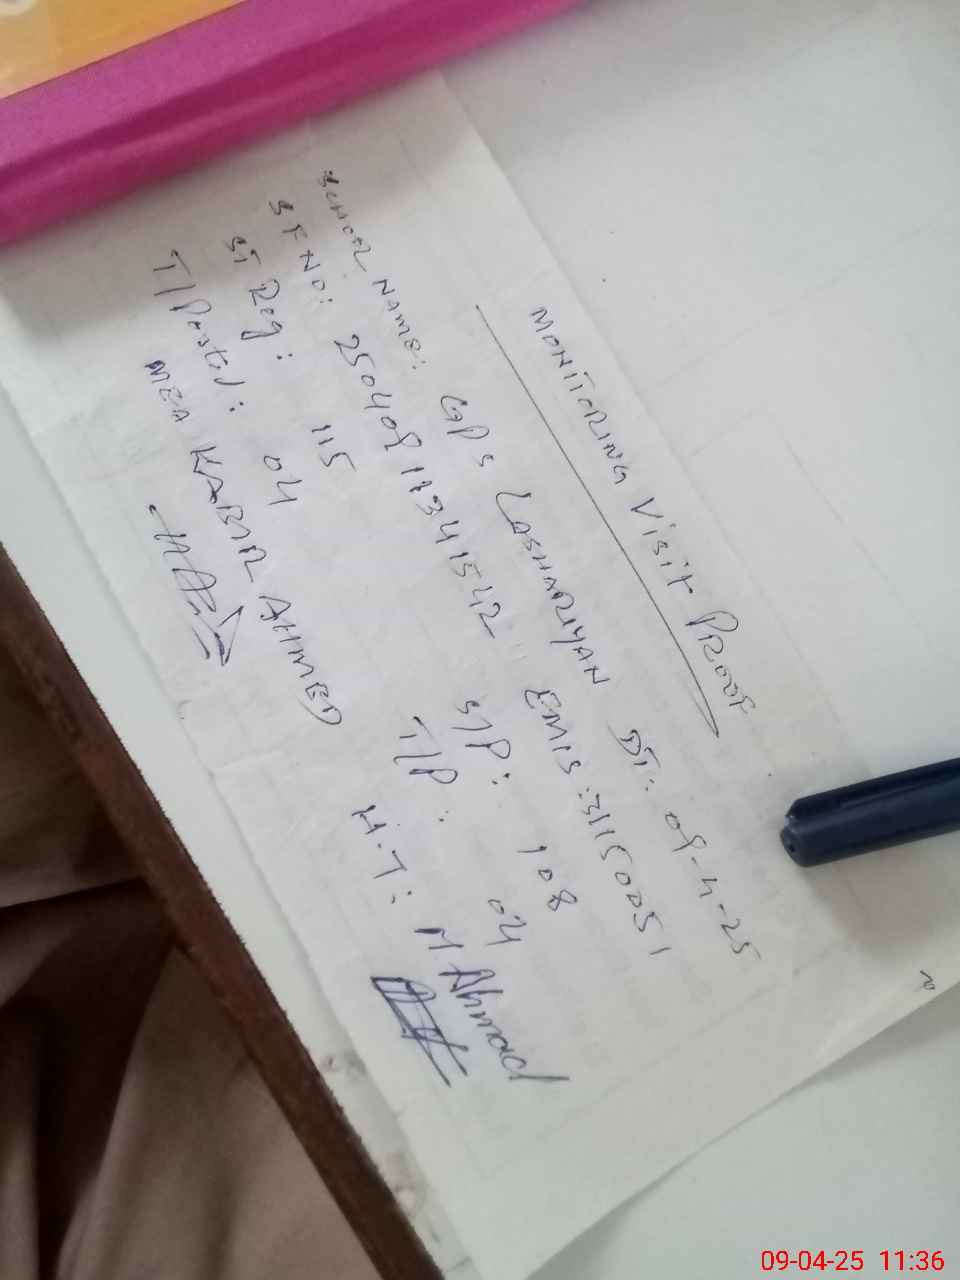 MONITORING Visit PROOF
SCHOOL NAME: GPS LASHARIYAN DT: 09-4-25
SF NO: 25040911341542 EMIS: 31150051
ST Reg: 115 S/P: 108
T/Posted: 04 T/P: 04
MEA KABIR AHMED H.T: M Ahmad
09-04-25 11:36